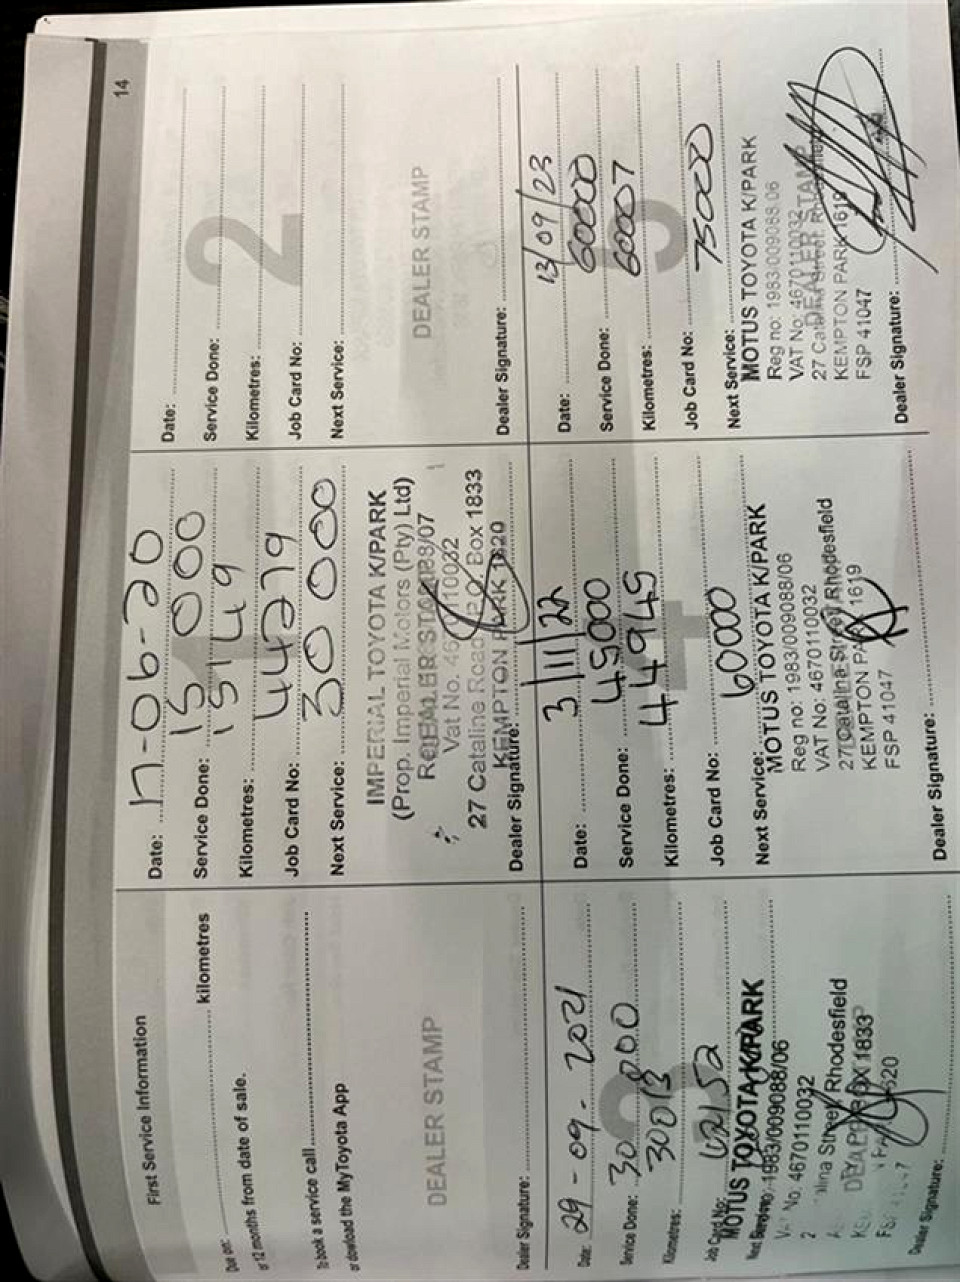 14
First Service Information
Due on: kilometres
or 12 months from date of sale.
To book a service call
or download the MyToyota App
DEALER STAMP
Dealer Signature:
1
Date: 17-06-20
Service Done: 15 000
Kilometres: 15149
Job Card No: 44279
Next Service: 30 000
IMPERIAL TOYOTA K/PARK
(Prop. Imperial Motors (Pty) Ltd)
DEALER STAMP
Vat No. 4670110032
27 Cataline Road P.O. Box 1833
KEMPTON PARK 1620
Dealer Signature:
2
Date:
Service Done:
Kilometres:
Job Card No:
Next Service:
DEALER STAMP
Dealer Signature:
3
Date: 29-09-2021
Service Done: 30 000
Kilometres: 30013
Job Card No:
Next Service:
MOTUS TOYOTA K/PARK
1983/009088/06
No: 4670110032
Street, Rhodesfield
BOX 1833
Dealer Signature:
4
Date: 3/11/22
Service Done: 45000
Kilometres: 44945
Job Card No:
Next Service: 60000
MOTUS TOYOTA K/PARK
Reg no: 1983/009088/06
VAT No: 4670110032
27 Catalina Street, Rhodesfield
KEMPTON PARK 1619
FSP 41047
Dealer Signature:
5
Date: 13/09/23
Service Done: 60000
Kilometres: 60007
Job Card No:
Next Service: 75000
MOTUS TOYOTA K/PARK
Reg no: 1983/009088/06
VAT No: 4670110032
DEALER STAMP
KEMPTON PARK 1619
FSP 41047
Dealer Signature: